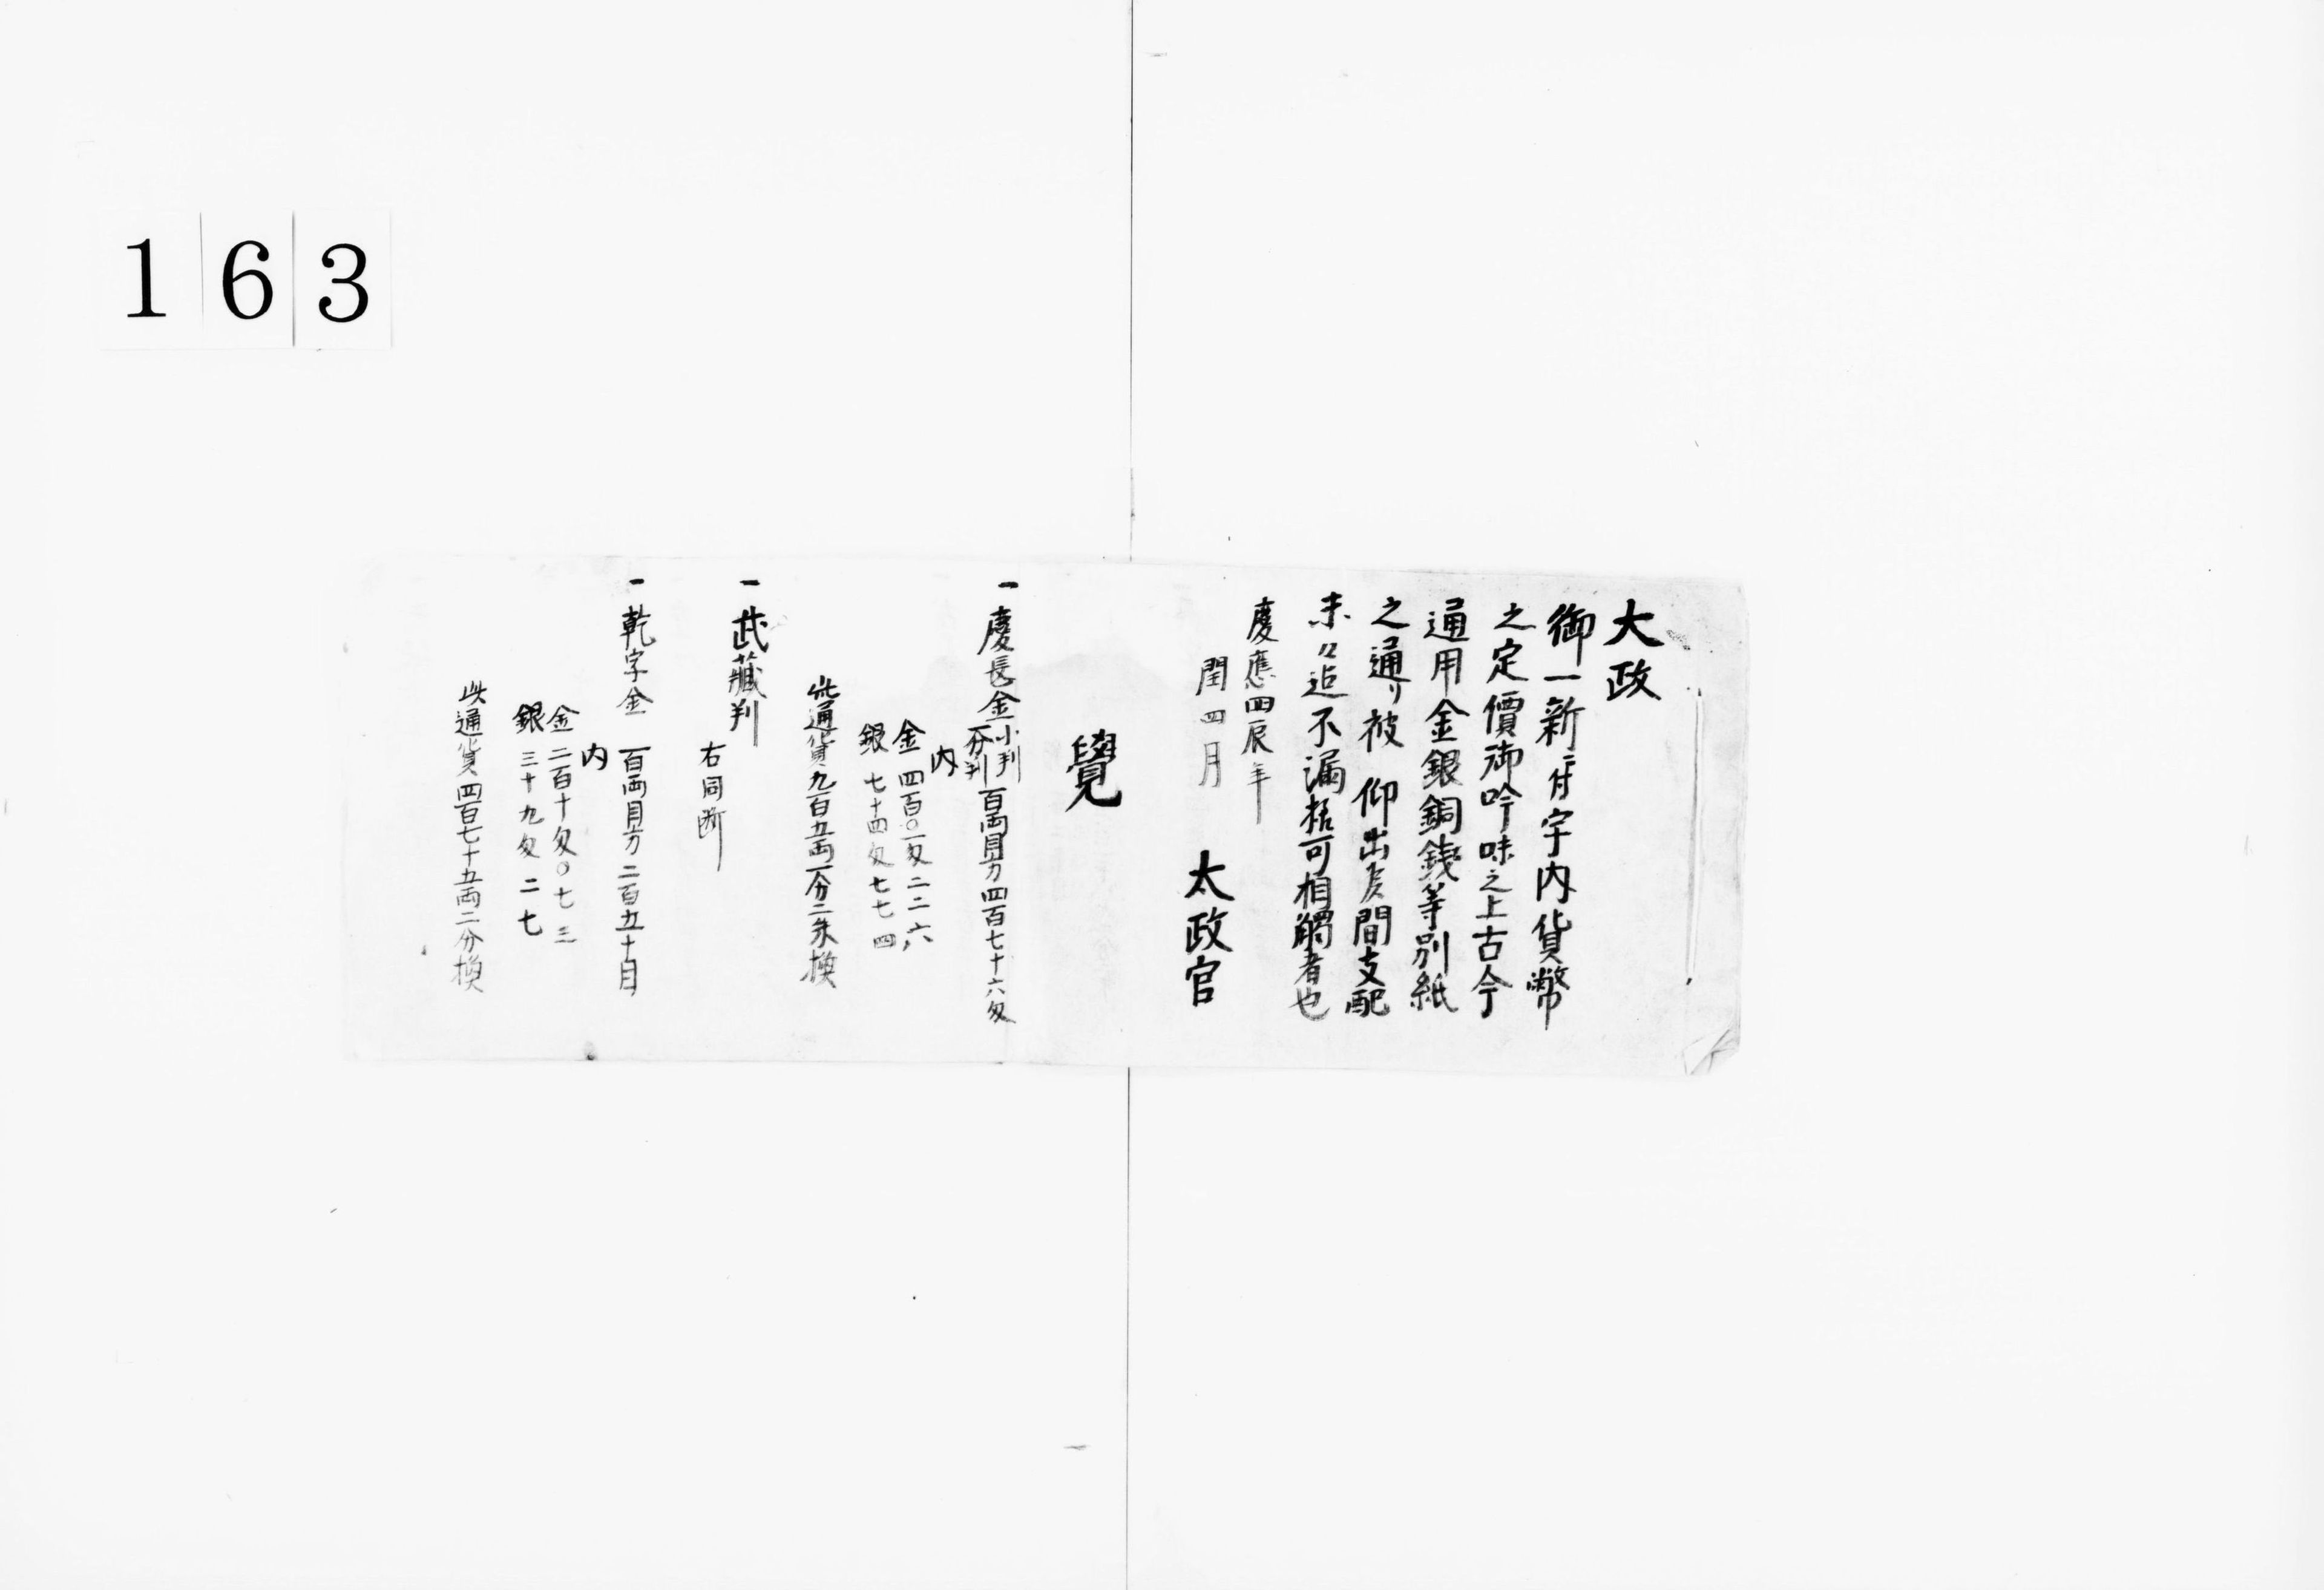 163
大政
御一新ニ付宇内貨幣
之定價御吟味之上古今
通用金銀銅銭等別紙
之通リ被 仰出候間支配
末々迄不漏様可相觸者也
慶應四辰年
閏四月 太政官
覺
一 慶長金 小判 一分判 百両目方四百七十六匁
内
金 四百〇一匁二二六
銀 七十四匁七七四
此通貨九百五両一分二朱換
一 武藏判
右同断
一 乾字金 百両目方二百五十目
内
金 二百十匁〇七三
銀 三十九匁二七
此通貨四百七十五両二分換